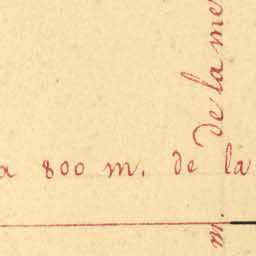 a 800 m. de la
m. de la me